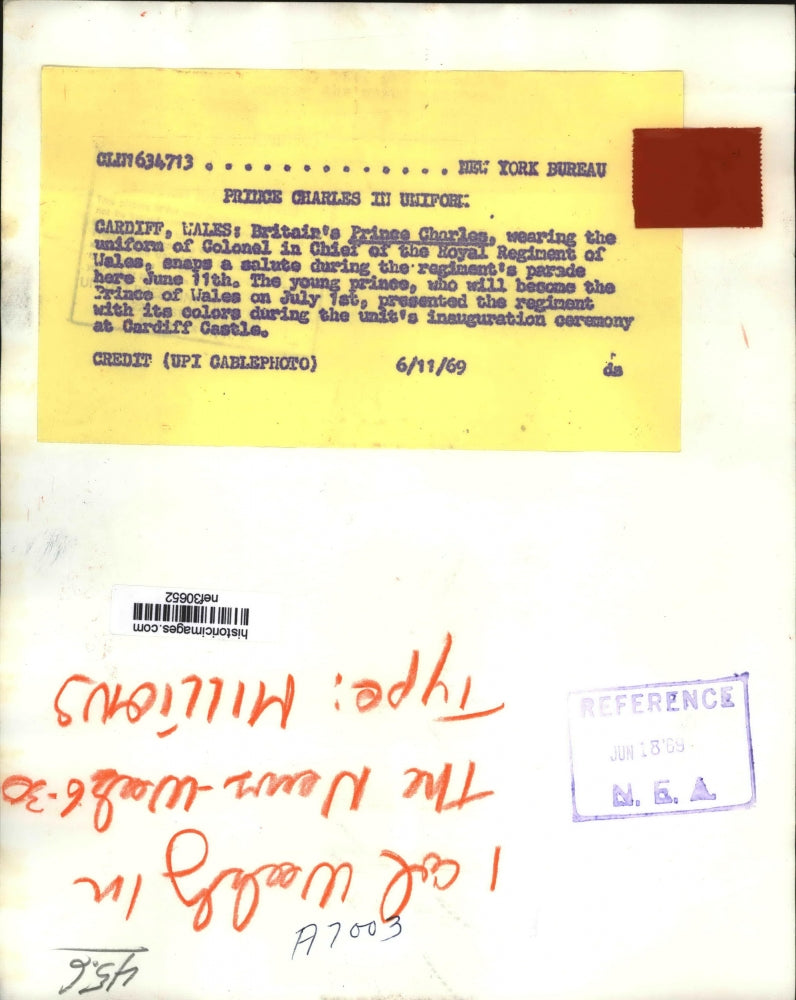 CLM1634713 . . . . . . . . . . . . . . NEW YORK BUREAU
PRINCE CHARLES IN UNIFORM
CARDIFF, WALES: Britain's Prince Charles, wearing the
uniform of Colonel in Chief of the Royal Regiment of
Wales, snaps a salute during the regiment's parade
here June 11th. The young prince, who will become the
Prince of Wales on July 1st, presented the regiment
with its colors during the unit's inauguration ceremony
at Cardiff Castle.
CREDIT (UPI CABLEPHOTO) 6/11/69 ds
historicimages.com
nef30652
REFERENCE
JUN 18 '69
N. E. A.
1 col Weekly In
The News - Week 6-30
Type: Millions
A7003
45.6